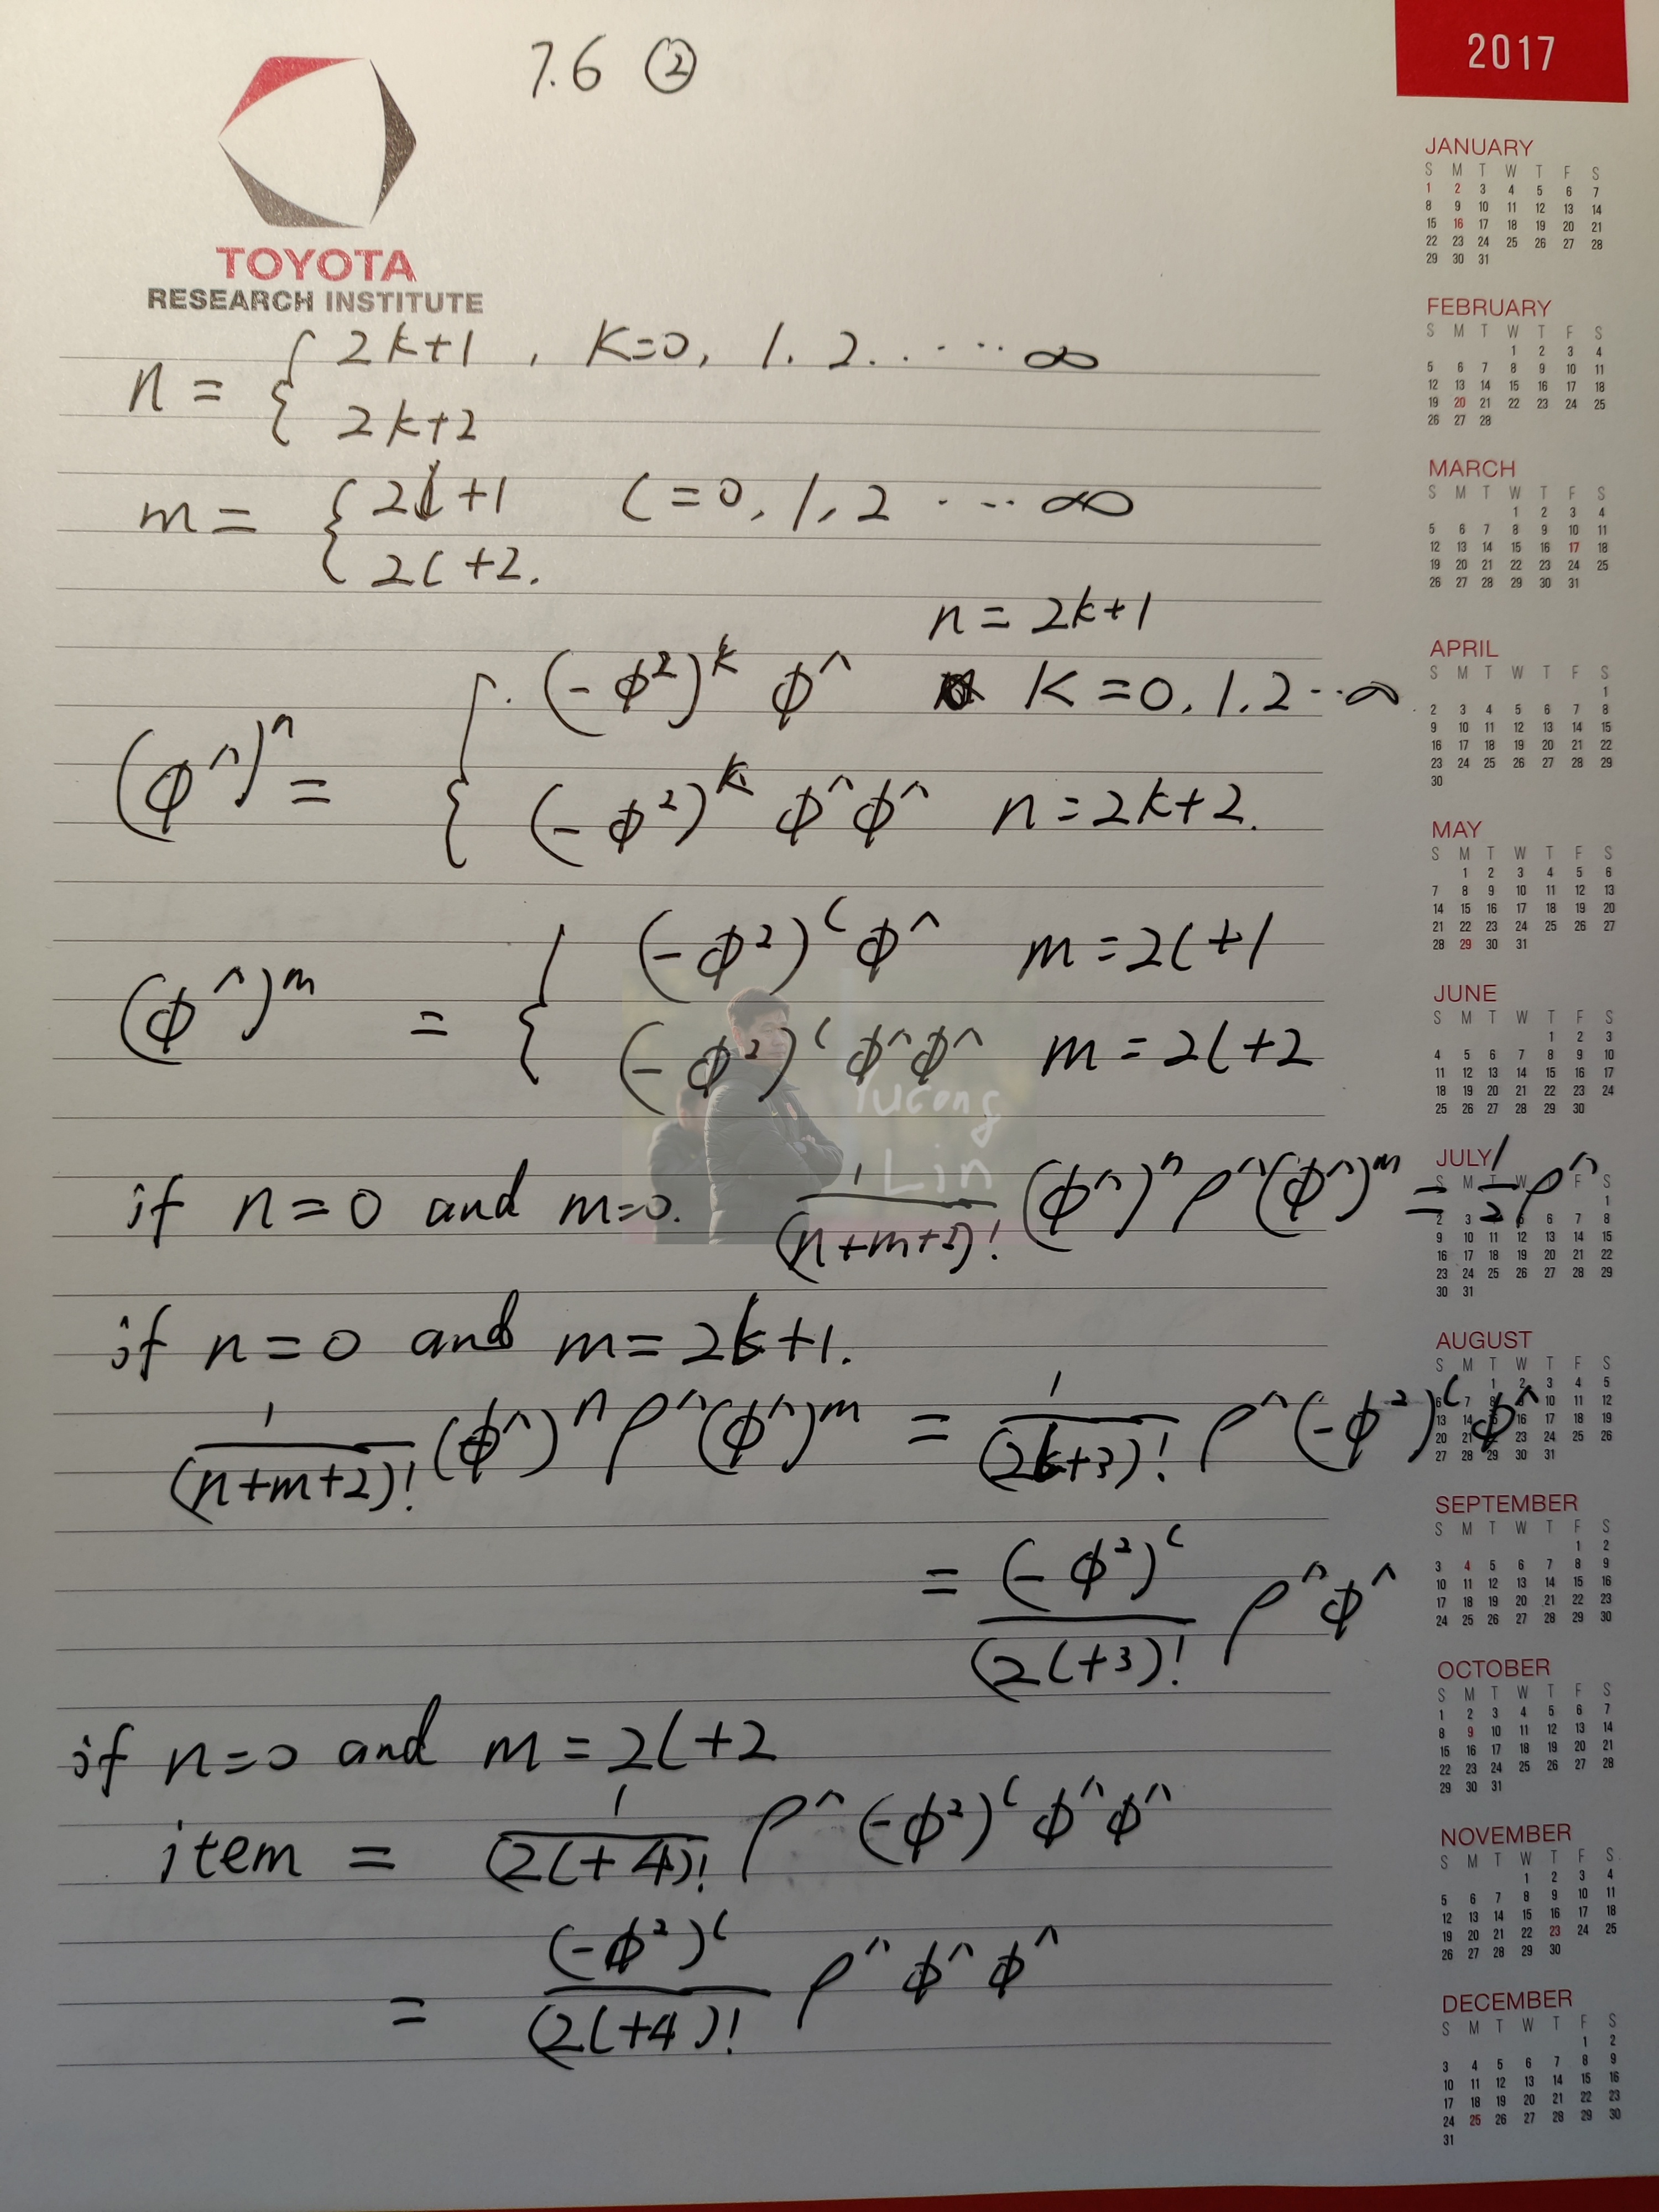 7.6 ②
2017
TOYOTA
RESEARCH INSTITUTE
n = { 2k+1 , K=0, 1. 2. . ... ∞
2k+2
m = { 2l+1 l=0, 1, 2 ... ∞
2l+2.
n = 2k+1
(ϕ^)ⁿ = { (-ϕ²)ᵏ ϕ^ K=0, 1. 2 ... ∞
(-ϕ²)ᵏ ϕ^ϕ^ n = 2k+2.
(ϕ^)ᵐ = { (-ϕ²)ˡ ϕ^ m = 2l+1
(-ϕ²)ˡ ϕ^ϕ^ m = 2l+2
Yucong
Lin
if n=0 and m=0. 1/(n+m+2)! (ϕ^)ⁿ ρ^(ϕ^)ᵐ = 1/2 ρ^
if n=0 and m=2k+1.
1/(n+m+2)! (ϕ^)ⁿ ρ^(ϕ^)ᵐ = 1/(2k+3)! ρ^(-ϕ²)ˡ ϕ^
= (-ϕ²)ˡ/(2l+3)! ρ^ϕ^
if n=0 and m = 2l+2
item = 1/(2l+4)! ρ^(-ϕ²)ˡ ϕ^ϕ^
= (-ϕ²)ˡ/(2l+4)! ρ^ϕ^ϕ^
JANUARY
S M T W T F S
1 2 3 4 5 6 7
8 9 10 11 12 13 14
15 16 17 18 19 20 21
22 23 24 25 26 27 28
29 30 31
FEBRUARY
S M T W T F S
1 2 3 4
5 6 7 8 9 10 11
12 13 14 15 16 17 18
19 20 21 22 23 24 25
26 27 28
MARCH
S M T W T F S
1 2 3 4
5 6 7 8 9 10 11
12 13 14 15 16 17 18
19 20 21 22 23 24 25
26 27 28 29 30 31
APRIL
S M T W T F S
1
2 3 4 5 6 7 8
9 10 11 12 13 14 15
16 17 18 19 20 21 22
23 24 25 26 27 28 29
30
MAY
S M T W T F S
1 2 3 4 5 6
7 8 9 10 11 12 13
14 15 16 17 18 19 20
21 22 23 24 25 26 27
28 29 30 31
JUNE
S M T W T F S
1 2 3
4 5 6 7 8 9 10
11 12 13 14 15 16 17
18 19 20 21 22 23 24
25 26 27 28 29 30
JULY
S M T W F S
1
2 3 5 6 7 8
9 10 11 12 13 14 15
16 17 18 19 20 21 22
23 24 25 26 27 28 29
30 31
AUGUST
S M T W T F S
1 2 3 4 5
6 7 8 10 11 12
13 14 16 17 18 19
20 21 23 24 25 26
27 28 29 30 31
SEPTEMBER
S M T W T F S
1 2
3 4 5 6 7 8 9
10 11 12 13 14 15 16
17 18 19 20 21 22 23
24 25 26 27 28 29 30
OCTOBER
S M T W T F S
1 2 3 4 5 6 7
8 9 10 11 12 13 14
15 16 17 18 19 20 21
22 23 24 25 26 27 28
29 30 31
NOVEMBER
S M T W T F S
1 2 3 4
5 6 7 8 9 10 11
12 13 14 15 16 17 18
19 20 21 22 23 24 25
26 27 28 29 30
DECEMBER
S M T W T F S
1 2
3 4 5 6 7 8 9
10 11 12 13 14 15 16
17 18 19 20 21 22 23
24 25 26 27 28 29 30
31